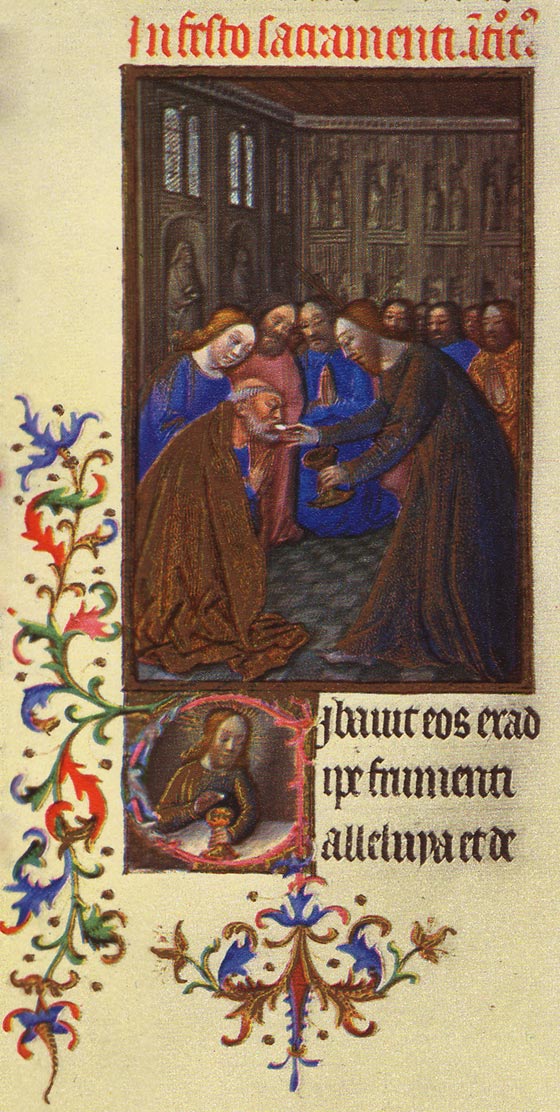 In festo sacramenti. ītͥtꝰ.
Cibauit eos exad
ipe frumenti
alleluya et de